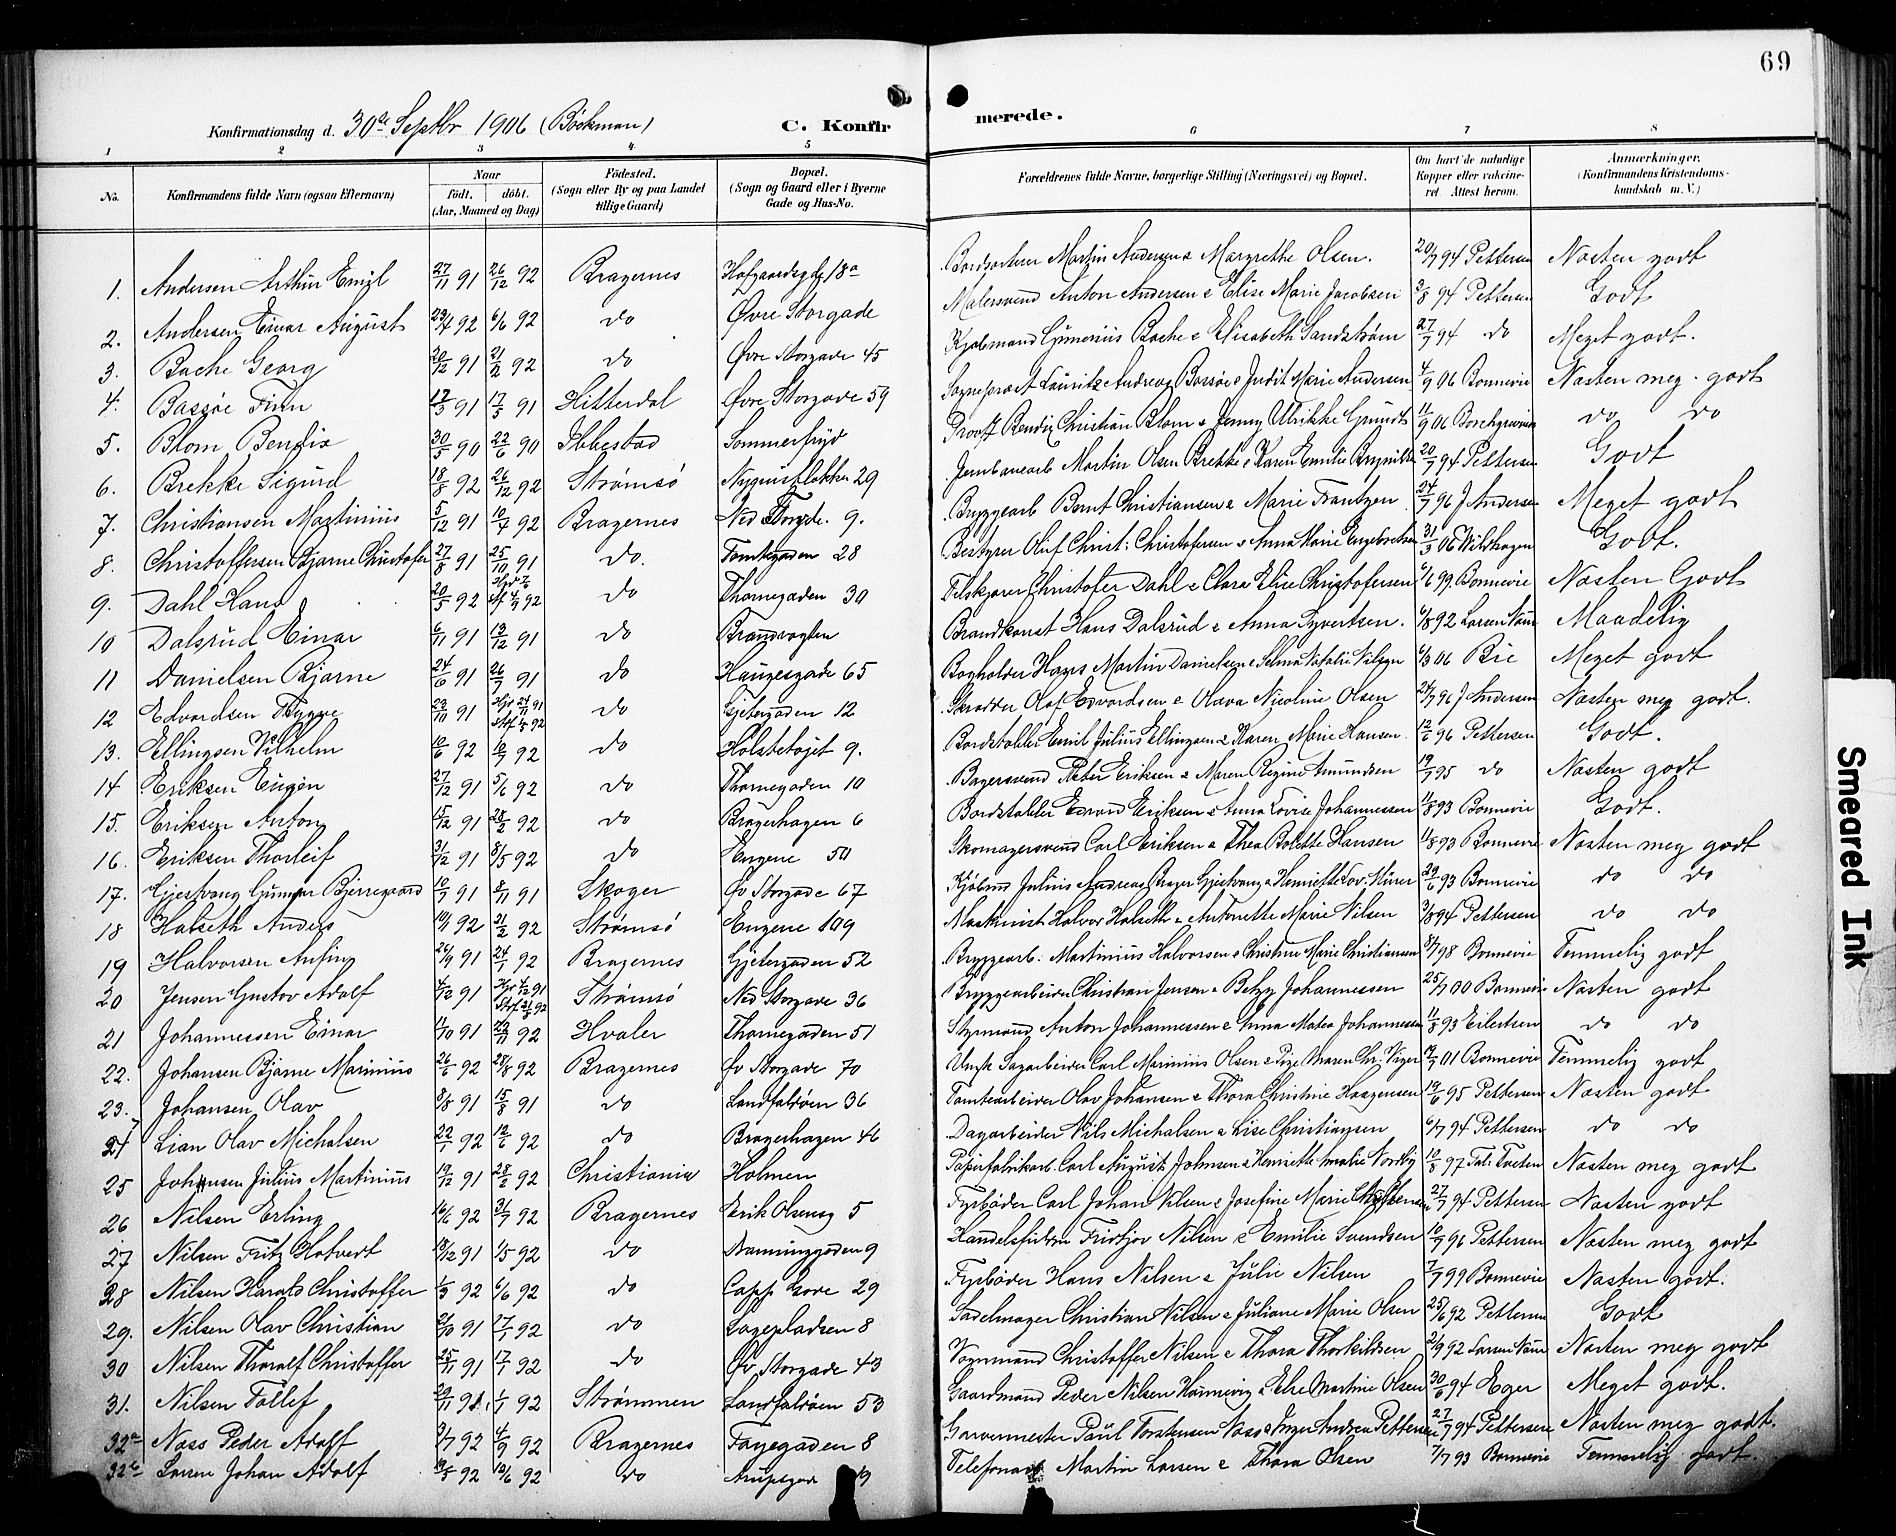 69
Konfirmationsdag d. 30de Septbr 1906 (Böckman)
C. Konfirmerede.
1 2 3 4 5 6 7 8
No. Konfirmandens fulde Navn (ogsaa Efternavn) Naar født. døbt. (Aar, Maaned og Dag) Fødested. (Sogn eller By og paa Landet tillige Gaard) Bopæl. (Sogn og Gaard eller i Byerne Gade og Hus-No. Forældrenes fulde Navne, borgerlige Stilling (Næringsvei) og Bopæl. Om havt de naturlige Kopper eller vakcineret. Attest herom. Anmærkninger. (Konfirmandens Kristendomskundskab m. V.)
1. Andersen Arthur Emil 27/11 91 26/12 92 Bragernes 18a Martin Andersen & Margrethe Olsen. 20/7 94 Pettersen Næsten godt
2. Andersen Einar August 92 6/6 92 do Øvre Storgade Malersvend Anton Andersen & Elise Marie Jacobsen 3/8 94 Pettersen Godt
3. Bache Georg 20/12 91 21/2 92 do Øvre Storgade 45 Kjøbmand Gunerius Bache & Elisabeth Sandstrøm 27/7 94 do Meget godt.
4. Bassøe Finn 17/3 91 17/5 91 Hitterdal Øvre Storgade 59 Sogneprest Lauritz Andreas Bassøe & Judit Marie Andersen 4/9 06 Bonnevie Næsten meg. godt
5. Blom Bendix 30/5 90 22/6 90 Ibbestad Sommerfryd Provst Bendix Christian Blom & Jenny Ulrikke Grundt 11/9 06 Borchgrevink do do
6. Brekke Sigurd 18/8 92 26/12 92 Strømsø 29 Jernbanearb Martin Olsen Brekke & Karen Emilie 20/7 94 Pettersen Godt
7. Christiansen Martinius 5/12 91 10/7 92 Bragernes Ned Storgde. 9. Bryggearb Bernt Christiansen & Marie Frantzen 24/7 96 J Andersen Meget godt
8. Christoffersen Bjarne Christofer 27/8 91 25/10 91 do. Tomtegaden 28 Bestyrer Oluf Christ: Christofersen & Anna Marie Engebretsen 31/3 06 Wildhagen Godt.
9. Dahl Hans 20/5 92 92 do Thornegaden 30 Christofer Dahl & Clara Elise Christofersen 6/6 99. Bonnevie Næsten Godt
10 Dalsrud Einar 6/11 91 13/12 91 do Brandvagten Brandkonst Hans Dalsrud & Anna Syvertsen. 6/8 92 Larsen Næss Maadelig
11 Danielsen Bjarne 24/6 91 26/7 91 do Haugesgade 65 Bogholder Hans Martin Danielsen & Selma Natalie Nilsen 6/3 06 Bie Meget godt
12 Edvardsen Trygve 29/10 91 91 92 do Gjetergaden 12 Skrædder Olaf Edvardsen & Olava Nicoline Olsen 24/7 96 J Andersen Næsten meg godt.
13. Ellingsen Vilhelm 10/6 92 92 do 9. Bordstabler Emil Julius Ellingsen & Karen Marie Hansen 12/6 96 Pettersen Godt.
14 Eriksen Eugen 27/12 91 5/6 92 do Thornegaden 10 Bagersvend Peter Eriksen & Maren Regine Amundsen 19/7 95 do Næsten godt
15. Eriksen Anton 15/12 91 28/2 92 do Bragerhagen 6 Bordstabler Edvard Eriksen & Anna Lovise Johannessen 11/8 93 Bonnevie Godt.
16. Eriksen Thorleif 31/12 91 8/5 92 do Engene 50 Skomagersvend Carl Eriksen & Thea Bolette Hansen 11/8 93 Bonnevie Næsten meg godt
17. Gjestvang Gunnar Bjerregaard 10/9 91 8/11 91 Skoger Øv Storgade 67 Kjøbmd Julius Andreas Prager Gjestvang & Henriette Lov. Mürer 29/6 93 Bonnevie do do
18 Halseth Anders 19/1 92 21/2 92 Strømsø Engene 109 Maskinist Halvor Halseth & Antonette Marie Nilsen 3/8 94 Pettersen do do
19 Halvorsen Anfin 26/9 91 24/1 92 Bragernes Gjetergaden 52 Bryggearb. Martinius Halvorsen & Christine Marie Christiansen 8/7 98 Bonnevie Temmelig godt
20 Jensen Gustav Adolf 4/12 91 91 92 Strømsø Ned Storgade 36 Bryggearbeider Christian Jensen & Betzy Johannessen 25/7 00 Bonnevie Næsten godt
21 Johannessen Einar 11/10 91 92 Hvaler Thornegaden 51 Styrmand Anton Johannessen & Anna Matea Johannessen 11/8 93 Eilertsen do do
22. Johansen Bjarne Marinius 26/6 92 28/8 92 Bragernes Øv Storgade 70 Ungk Sagarbeider Carl Marinius Olsen & Pige Maren Chr. Viger 01 Bonnevie Temmelig godt
23. Johansen Olav 8/8 91 15/8 91 do Landfaløen 36 Tomtearbeider Olav Johansen & Thora Christine Haagensen 19/6 95 Pettersen Næsten godt
24 Lian Olav Michalsen 22/1 92 12/6 92 do Bragerhagen 46 Dagarbeider Nils Michalsen & Lise Christiansen 6/7 94 Pettersen do do
25 Johnsen Julius Martinius 19/12 91 28/2 92 Christiania Holmen Papirfabrikarb. Carl August Johnsen & Henriette Amalie Nordby 10/8 97 Næsten meg godt
26 Nilsen Erling 16/6 92 31/7 92 Bragernes Erik Olsensg 5 Fyrbøder Carl Johan Nilsen & Josefine Marie 27/7 94 Pettersen Næsten godt
27 Nilsen Fritz Hotvedt 18/12 91 1/5 92 do 9 Fridtjov Nilsen & Emilie Svendsen 10/7 96 Pettersen Næsten meg godt
28 Nilsen Harald Christoffer 1/3 92 6/6 92 do Capp Gade 29 Fyrbøder Hans Nilsen & Julie Nilsen 7/7 99 Bonnevie Næsten godt.
29. Nilsen Olav Christian 21/10 91 17/1 92 do Løgepladsen 8 Sadelmager Christian Nilsen & Juliane Marie Olsen 25/6 92 Pettersen Godt
30 Nilsen Thoralf Christoffer 25/11 91 17/1 92 do Øv Storgade 43 Vognmand Christoffer Nilsen & Thora Thorkildsen 2/9 92 Larsen Næss Næsten meg godt
31. Nilsen Tollef 29/11 91 1/1 92 Strømmen Landfaløen 53 Gaardmand Peder Nilsen Hannevig & Else Martine Olsen 30/6 94 Eger Meget godt.
32a Næss Peder Adolf 3/7 92 4/9 92 Bragernes Fayegaden 8 Garvermester Paul Torstensen Næss & Inger Andrea Pettersen 27/7 94 Pettersen Næsten meg godt.
32b Larsen Johan Adolf 92 12/6 92 do 19 Martin Larsen & Thora Olsen 7/7 93 Bonnevie Temmelig godt.
Smeared Ink